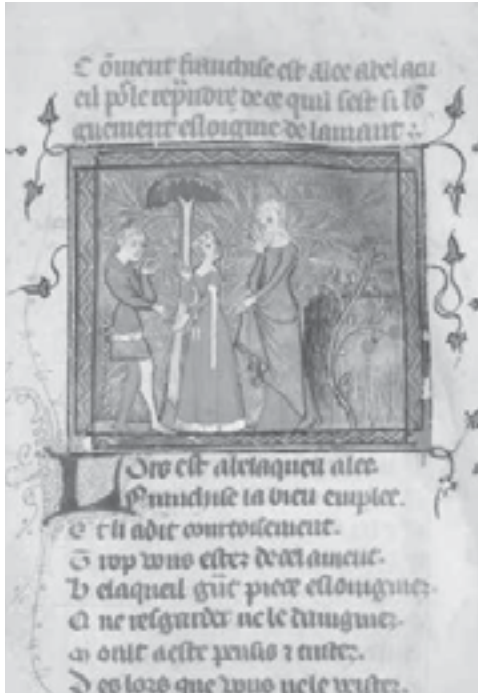 Coment franchise est alee a belacu
eil pour le repndre de ce quil sest si lo
guement esloigne de lamant
Ors est a belaqueil alee
Franchise la bien emplee.
Et li a dit courtoisement.
Trop vous estes
Belaqueil grnt piece eslongniez
Que resgarder ne le daingniez
Moult a este pensis et tristez
Des lors que vous ne le